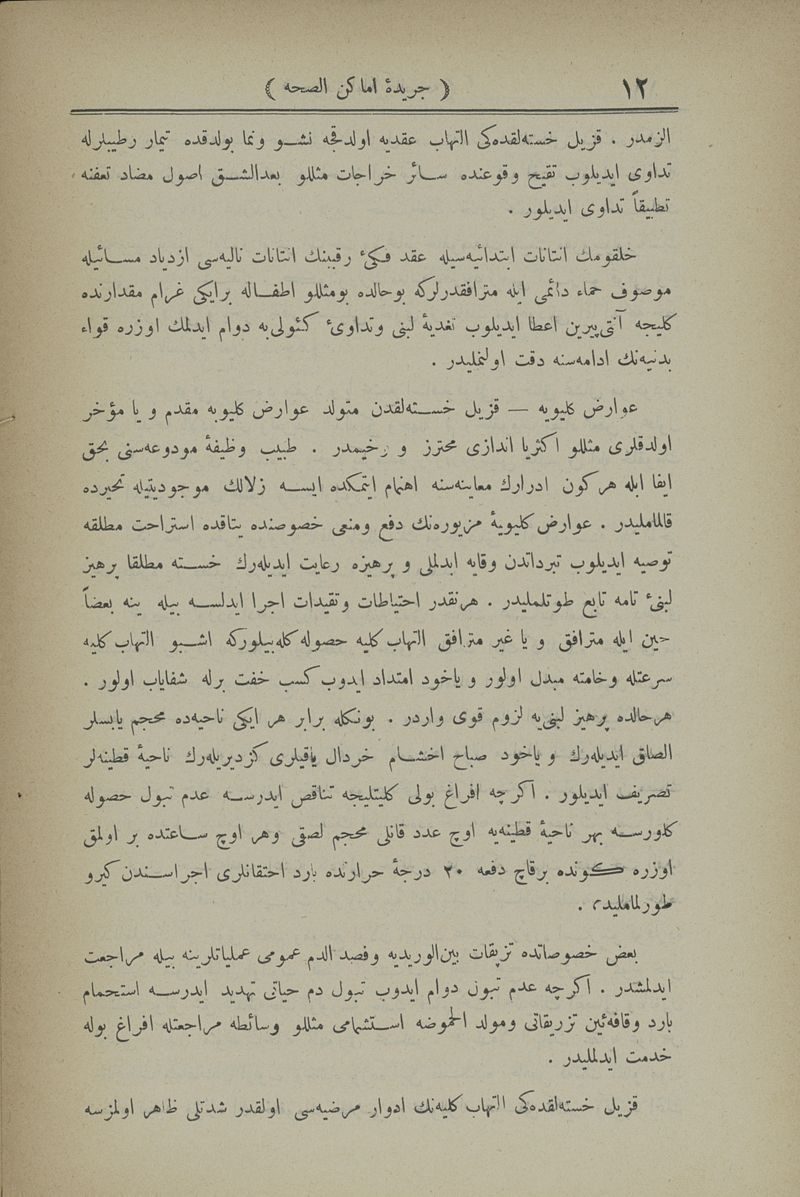 ١٢
( جریدهٔ اماکن الصحه )
الزمدر . قزیل خسته‌لقده‌کی التهاب عقدیه اولدقجه نشو و نما بولدقده تیمار رطیبلرله
تداوی ایدیلوب تقیح وقوعنده سائر خراجات مثللو بعدالشق اصول مضاد تعفنه
تطبیقاً تداوی ایدیلور .
خلقومك انتانات ابتدائیه‌سیله عقد فکیٔ رقبینك انتانات تالیه‌سی ازدیاد مسائیله
موصوف حماء دائمی ایله مترافقدرلرکه بوحالده بومثللو اطفاله برایکی غرام مقدارنده
کلیجه آنتی‌پیرین اعطا ایدیلوب تغدیهٔ لبنی وتداویٔ کئولی‌یه دوام ایدلمك اوزره قواء
بدنیه‌نك ادامه‌سنه دقت اولنملیدر .
عوارض کلیویه — قزیل خسته‌لقدن متولد عوارض کلیویه مقدم و یا مؤخر
اولدقلری مثللو اکثریا اندازی محترز و رخیمدر . طبیب وظیفهٔ مودوعه‌سنی بحق
ایفا ایله هرکون ادرارك معاینه‌سنه اهتمام ایتمکده ایسه زلالك موجودیتیله تحیرده
قالماملیدر . عوارض کلیویهٔ مزبوره‌نك دفع ومنعی خصوصنده یتاقده استراحت مطلقه
توصیه ایدیلوب تبرداتدن وقایه ایدلملی و پرهیزه رعایت ایدیله‌رك خسته مطلقا پرهیز
لبنیٔ تامه تابع طوتلملیدر . هرنقدر احتیاطات وتقیدات اجرا ایدلسه بیله ینه بعضاً
حین ایله مترافق و یا غیر مترافق التهاب کلیه حصوله کله‌بیلورکه اشبو التهاب کلیه
سرعتله وخامته مبدل اولور و یاخود امتداد ایدوب کسب خفت برله شفایاب اولور .
هرحالده پرهیز لبنی‌یه لزوم قوی واردر . بونکله برابر هر ایکی ناحیه‌ده محجم یابسلر
الصاق ایدیله‌رك و یاخود صباح اخشام خردال یاقیلری کزدیریله‌رك ناحیهٔ قطینه‌لر
تصریف ایدیلور . اکرچه افراغ بولی کلیتلیجه تناقص ایدرسه عدم تبول حصوله
کلورسه بهر ناحیهٔ قطینه‌یه اوچ عدد قانلی محجم لصقی وهر اوچ ساعتده بر اولمق
اوزره کونده برقاچ دفعه ٢٠ درجهٔ حرارتده بارد احتقانلری اجراسندن کیرو
طورلماملیدر .
بعض خصوصاتده تزریقات بین‌الوریدیه وفصد الدم عمومی عملیاتلرینه بیله مراجعت
ایدلمشدر . اکرچه عدم تبول دوام ایدوب تبول دم حیاتی تهدید ایدرسه استحمام
بارد وقافه‌ئین تزریقاتی ومولد الحموضه استنشاقی مثللو وسائطه مراجعتله افراغ بوله
خدمت ایدلملیدر .
قزیل خسته‌لقده‌کی التهاب کلیه‌نك ادوار مرضیه‌سی اولقدر شدتلی ظاهر اولمزسه